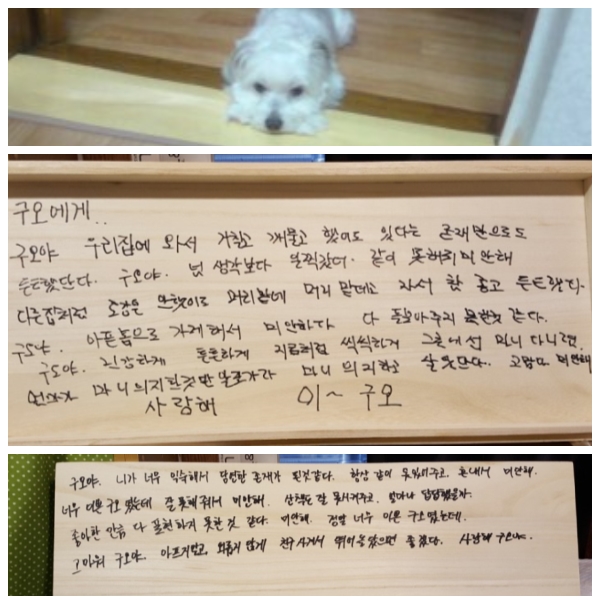 구오에게..
구오야 우리집에 와서 가끔 깨물고 했어도 있다는 존재만으로도
든든했단다. 구오야. 넌 생각보다 일찍갔다. 같이 못해줘 미안해
다른집처럼 호강은 안했어도 머리맡에 자서 참 좋고 든든했다.
구오야. 아픈몸으로 가게해서 미안하다 다 돌봐주지 못한것 같다.
구오야. 건강하게 튼튼하게 지금처럼 씩씩하게 그곳에선 다니렴.
언니가 마니 의지한것만 알고가라 마니 의지하고 살았단다. 고맙다 미안해
사랑해 이~ 구오
구오야. 니가 너무 익숙해서 당연한 존재가 된것같다. 항상 같이 못있어주고, 혼내서 미안해.
너무 이쁜 구오였는데 잘 못해줘서 미안해. 산책도 잘 못시켜주고, 얼마나 답답했을까.
좋아한 만큼 다 표현하지 못한 것 같다. 미안해. 정말 너무 이쁜 구오였는데.
고마워 구오야. 아프지말고, 외롭지 않게 친구 사겨서 뛰어놀았으면 좋겠다. 사랑해 구오야.